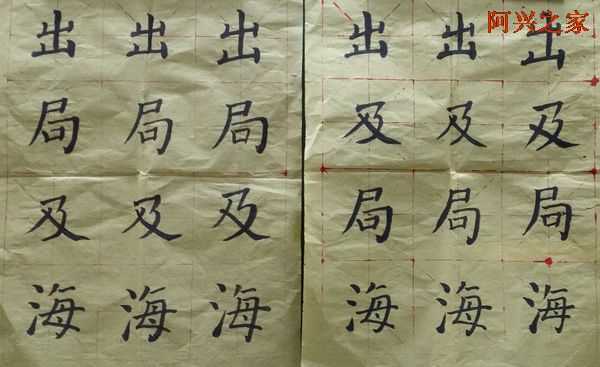 出出出
局局局
及及及
海海海
阿兴之家
出出出
及及及
局局局
海海海